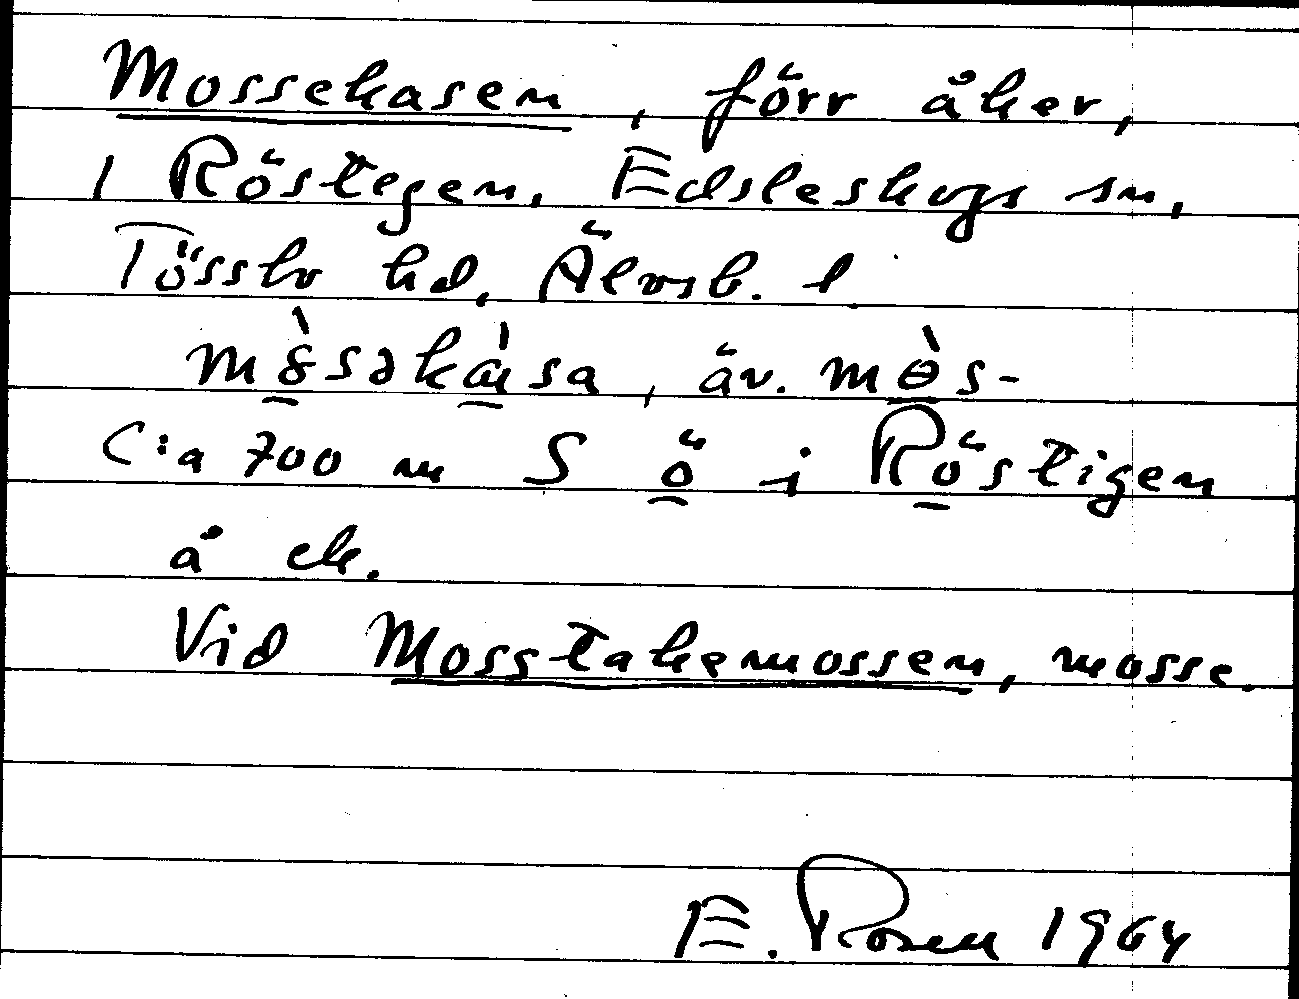 Mossekasen, förr åker,
1 Röstegen, Edsleskogs sn,
Tössbo hd, Älvsb. l.
mòsəkàsa, äv. mɵ̀s-
C:a 700 m S ö i Röstigen
å ek.
Vid Mosstakemossen, mosse.
E. Rosen 1964